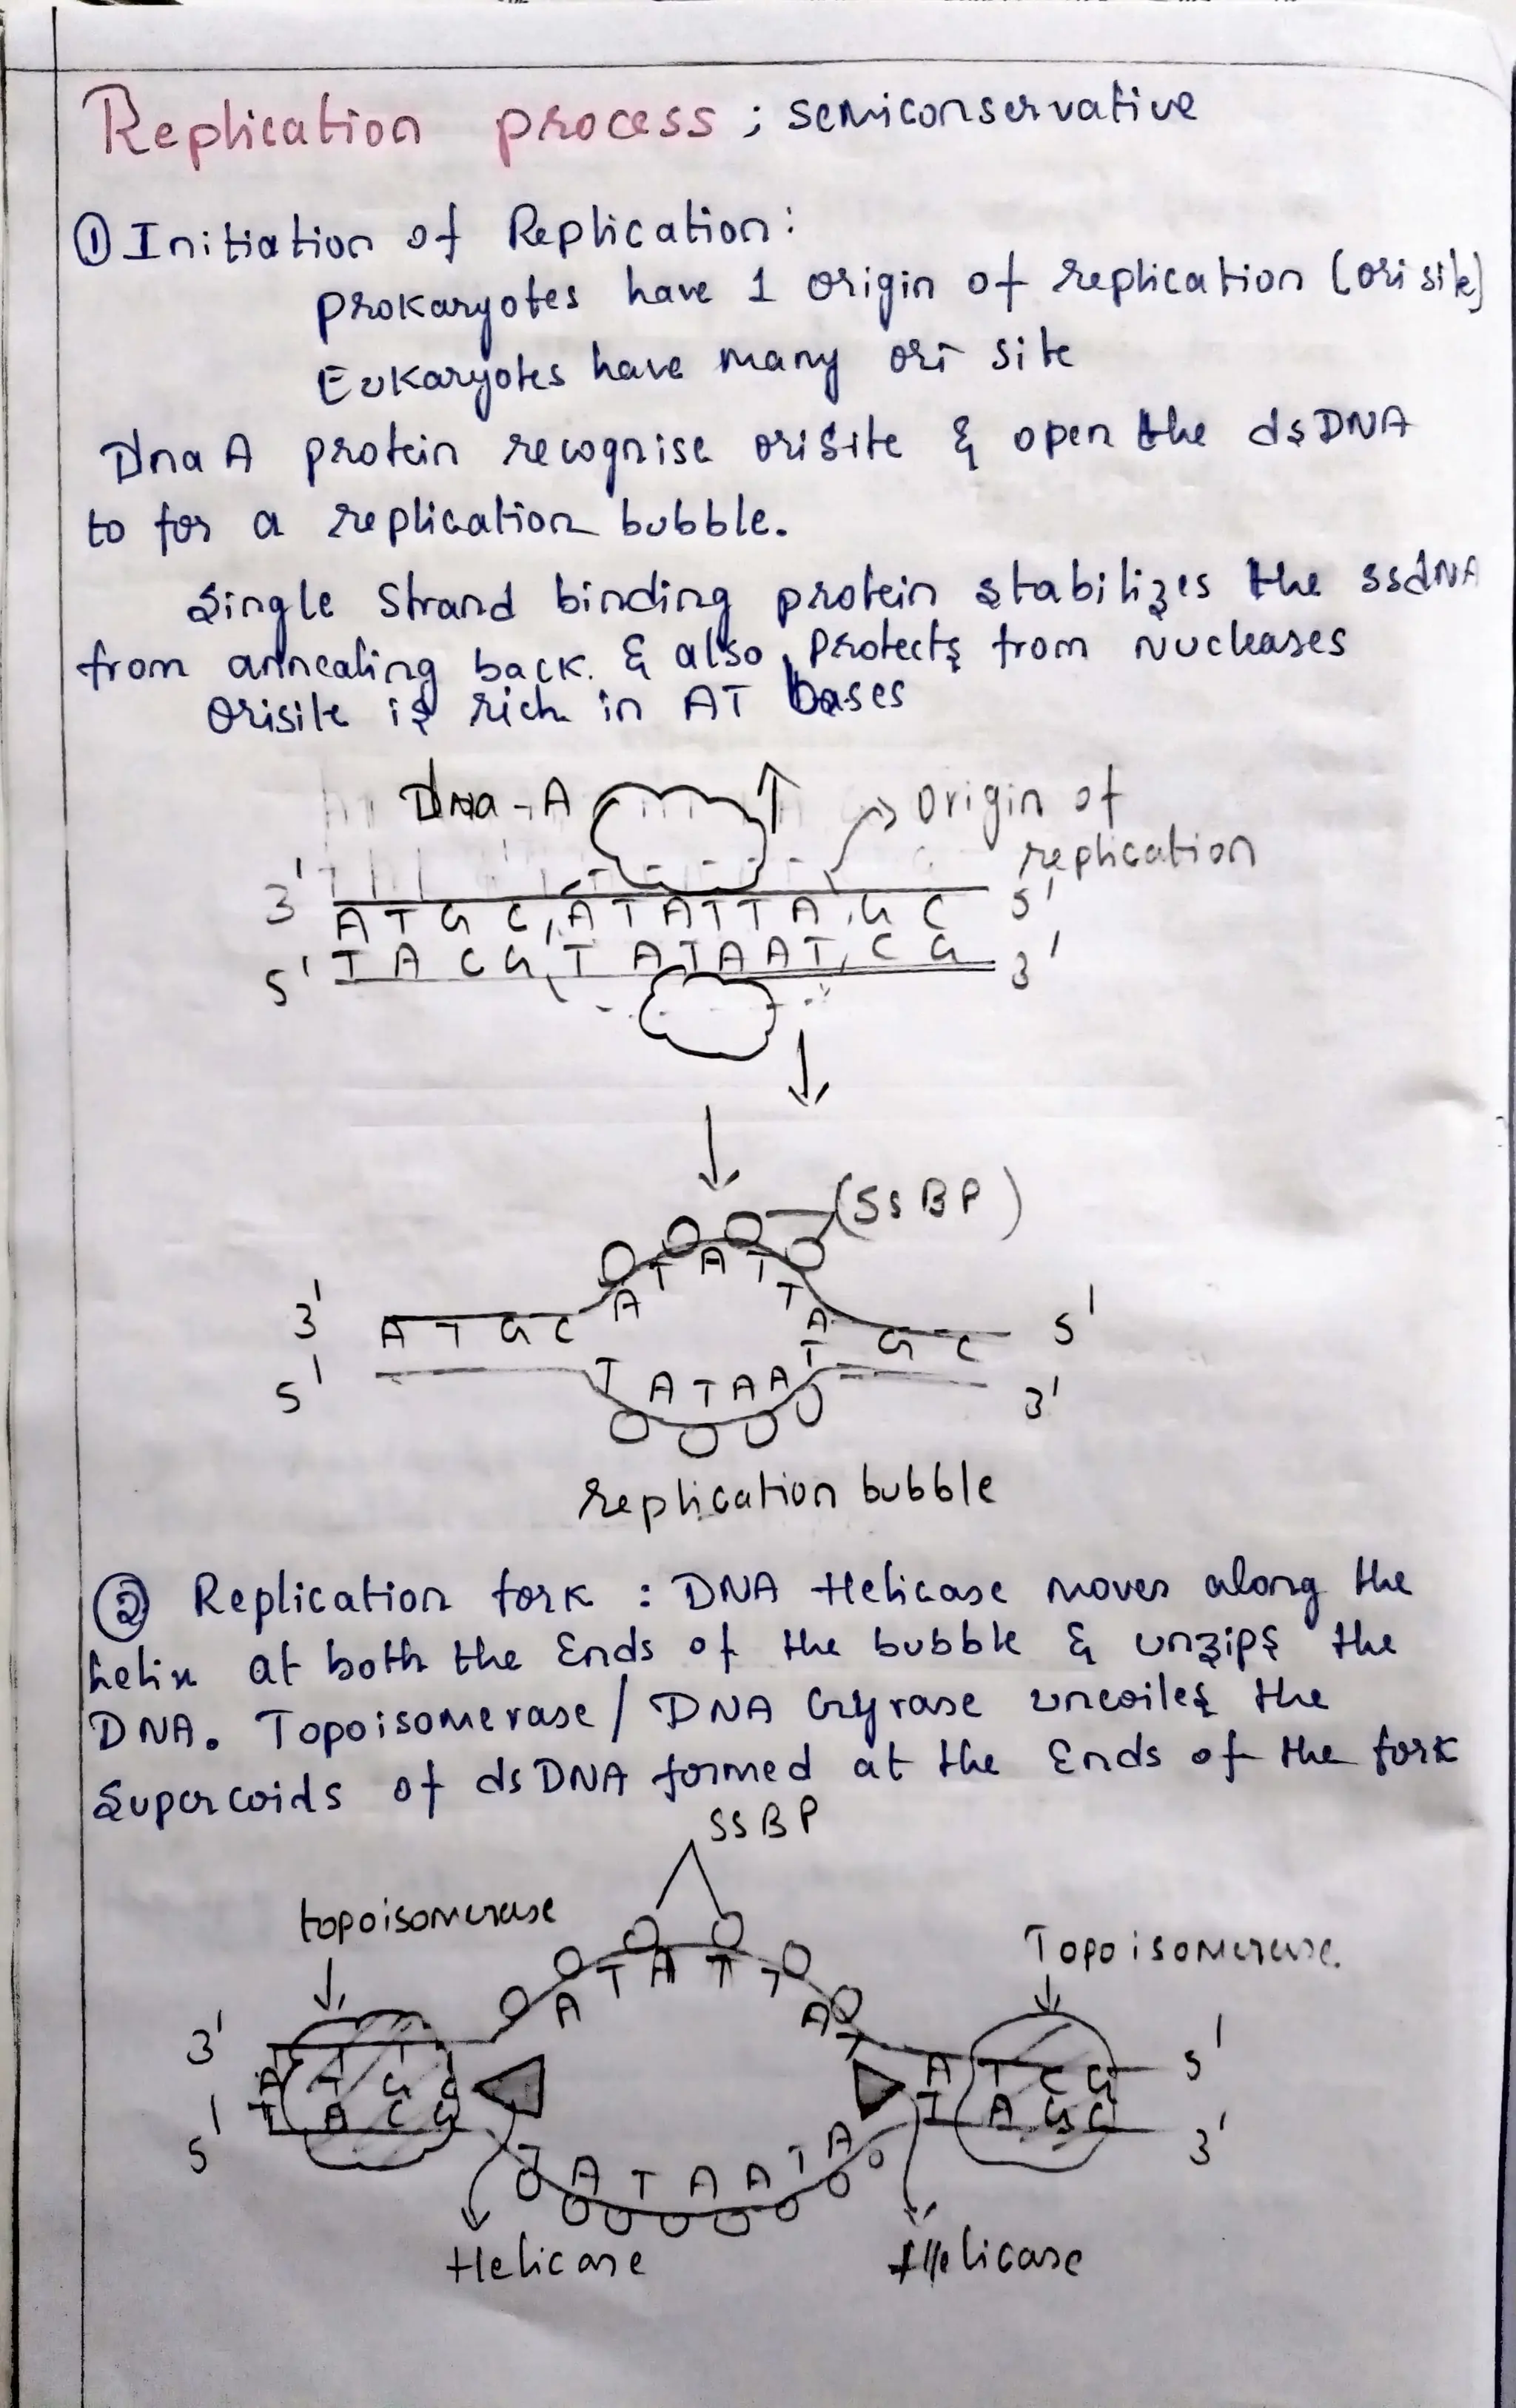 Replication process ; semiconservative
① Initiation of Replication:
Prokaryotes have 1 origin of replication (ori site)
Eukaryotes have many ori site
Dna A protein recognise orisite & open the dsDNA
to for a replication bubble.
Single strand binding protein stabilizes the ssdNA
from annealing back. & also protects from nucleases
Orisite is rich in AT bases
Dna-A
Origin of
replication
3' A T G C A T A T T A G C 5'
5' T A C G T A T A A T C G 3'
(SSBP)
3' A T G C A T A T T A G C 5'
5' T A T A A T 3'
replication bubble
② Replication fork : DNA Helicase moves along the
helix at both the Ends of the bubble & unzips the
DNA. Topoisomerase / DNA Gyrase uncoiles the
Supercoids of dsDNA formed at the Ends of the fork
SSBP
topoisomerase
Topoisomerase.
3' A T G C A T A T T A T A T C G 5'
5' T A C G T A T A A T A T A G C 3'
Helicase
Helicase